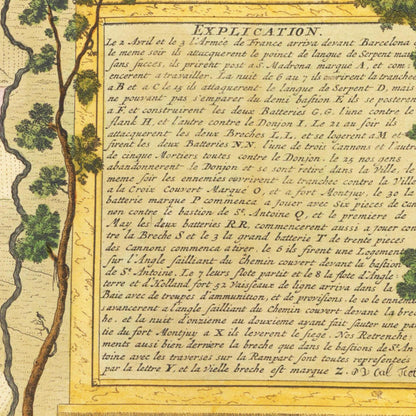 EXPLICATION.
Le 2 Avril et le 3 l'Armée de France arriva devant Barcelona
le meme soir ils attaquerent le poinct de langue de Serpent mais
sans succes, ils prirent post a S. Madrona marque A, et com
encerent a travailler. La nuit de 6 au 7 ils ouvrirent la tranchee
a B et a C le 15 ils attaquerent le langue de Serpent D, mais
ne pouvant pas s'emparer du demi bastion E ils se posterent
a F et construirent les deux Batteries G.G. l'une contre le
flank H, et l'autre contre le Donjon I. Le 21 au soir ils
attacquerent les deux Breches L.L, et se logerent a M et
firent les deux Batteries NN. l'une de troi Cannons et l'autre
de cinque Mortiers toutes contre le Donjon. le 25 nos gens
abandonnerent le Donjon et se sont retiré dans la Ville. le
meme soir les ennemies ouvrirent la tranchee contre la Ville
a la Croix Couvert Marqué O, et a fort Montjuy. le 29 la
batterie marque P commenca a jouer avec Six pieces de Can
non contre le bastion de St. Antoine Q, et le premiere de
May les deux Batteries R.R. commencerent aussi a jouer con
tre la Breche S et le 3 la grand batterie T de trente pieces
des Cannons commenca a tirer. le 6 ils firent une Logement
sur l'Angle sailliant du Chemin couvert devant la bastion
de St. Antoine. Le 7 leurs flote partit et le 8 la flote d'Angle
terre et d'Holland fort 52 Vaisseaux de ligne arriva dans la
Baie avec de troupes d'ammunition, et de provisions. le 10 le ennemi
s'avancerent a l'angle sailliant du Chemin couvert devant la bre
che. et la nuit d'onzieme au douzieme ayant fait sauter une par
tie du fort Montjuy a X ils leverent le siege. Nos Retrenche
ments aussi bien derriere la breche que dans le bastions de St. An
toine avec les traverses sur la Rampart sont toutes representées
par la lettre Y. et la Vielle breche est marque Z.